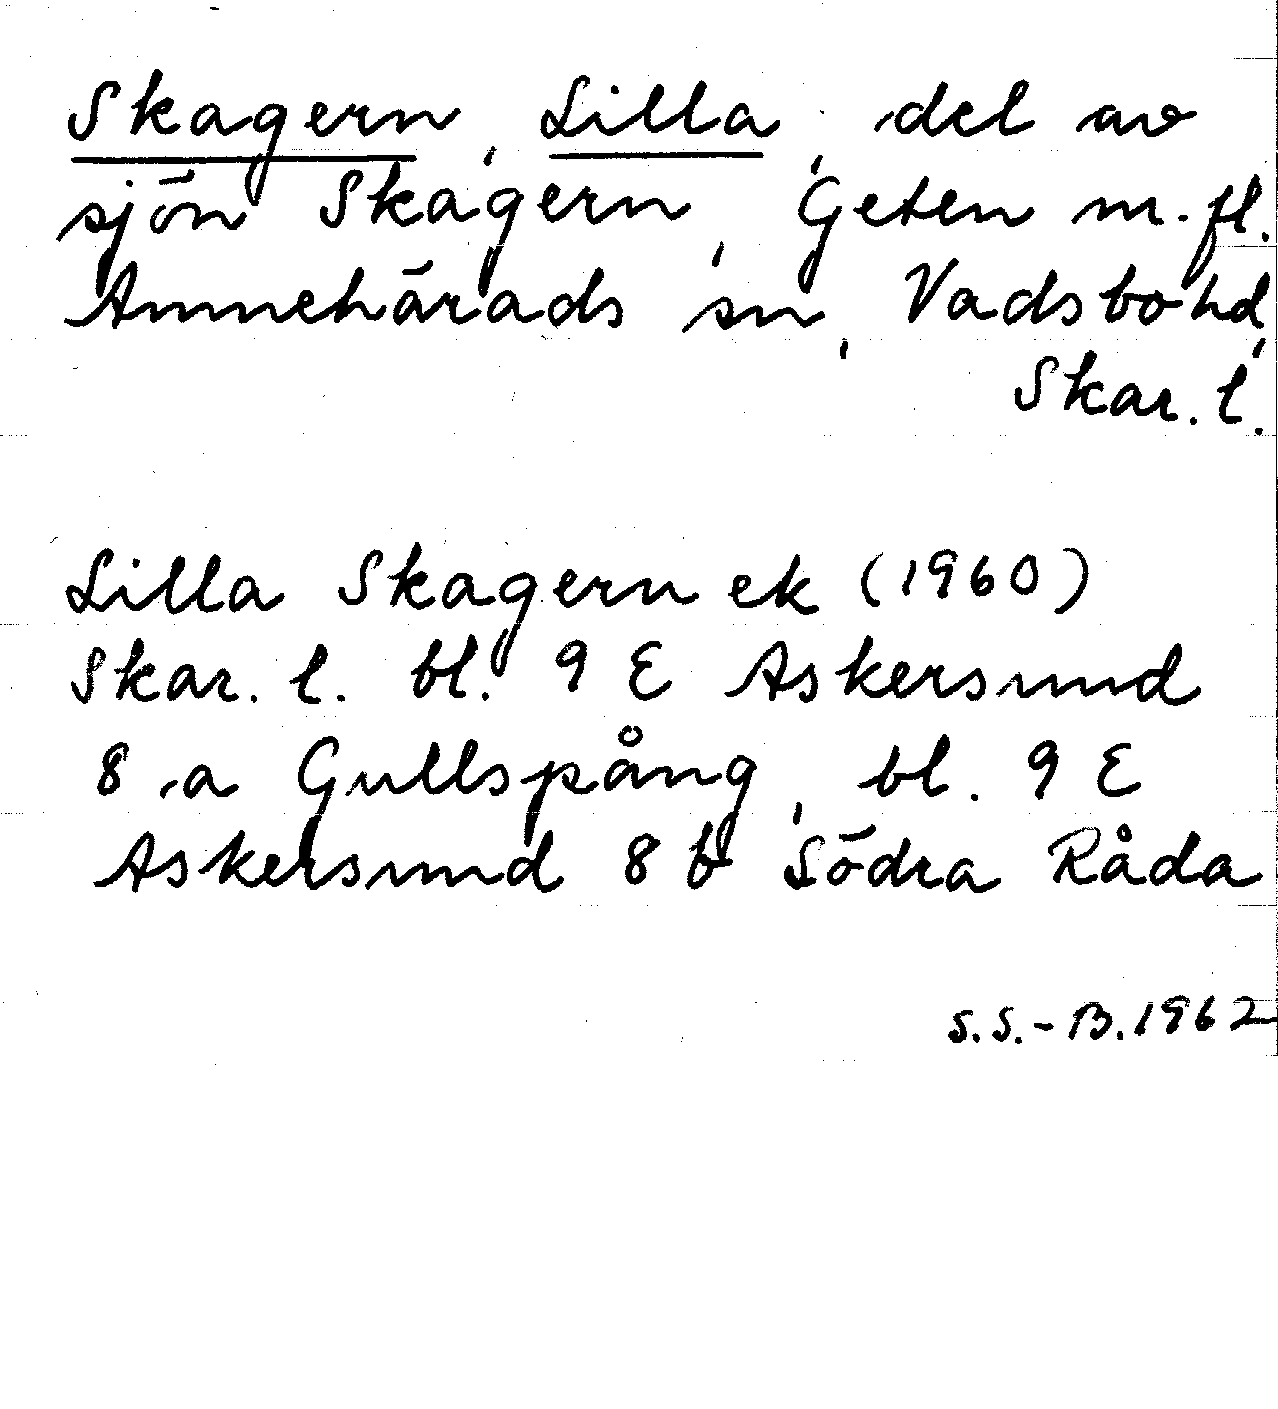 Skagern, Lilla, del av
sjön Skagern, Geten m.fl.
Amnehärads sn, Vadsbo hd,
Skar. l.
Lilla Skagern ek (1960)
Skar. l. bl. 9 E Askersund
8 a Gullspång, bl. 9 E
Askersund 8 b Södra Råda
S.S.-B. 1962